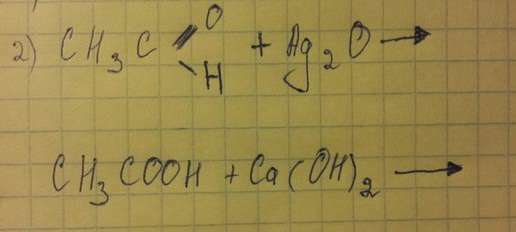 O
2) CH₃C + Ag₂O →
H
CH₃COOH + Ca(OH)₂ →